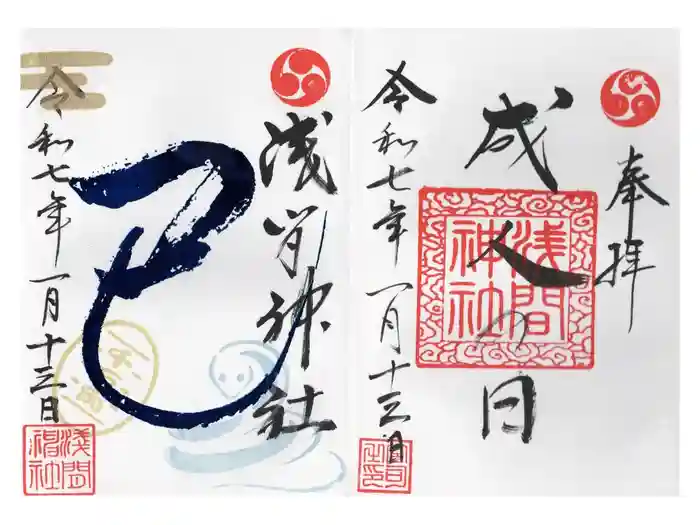 奉拝
成人の日
浅間神社
令和七年一月十三日
浅間神社
巳
令和七年一月十三日
浅間神社